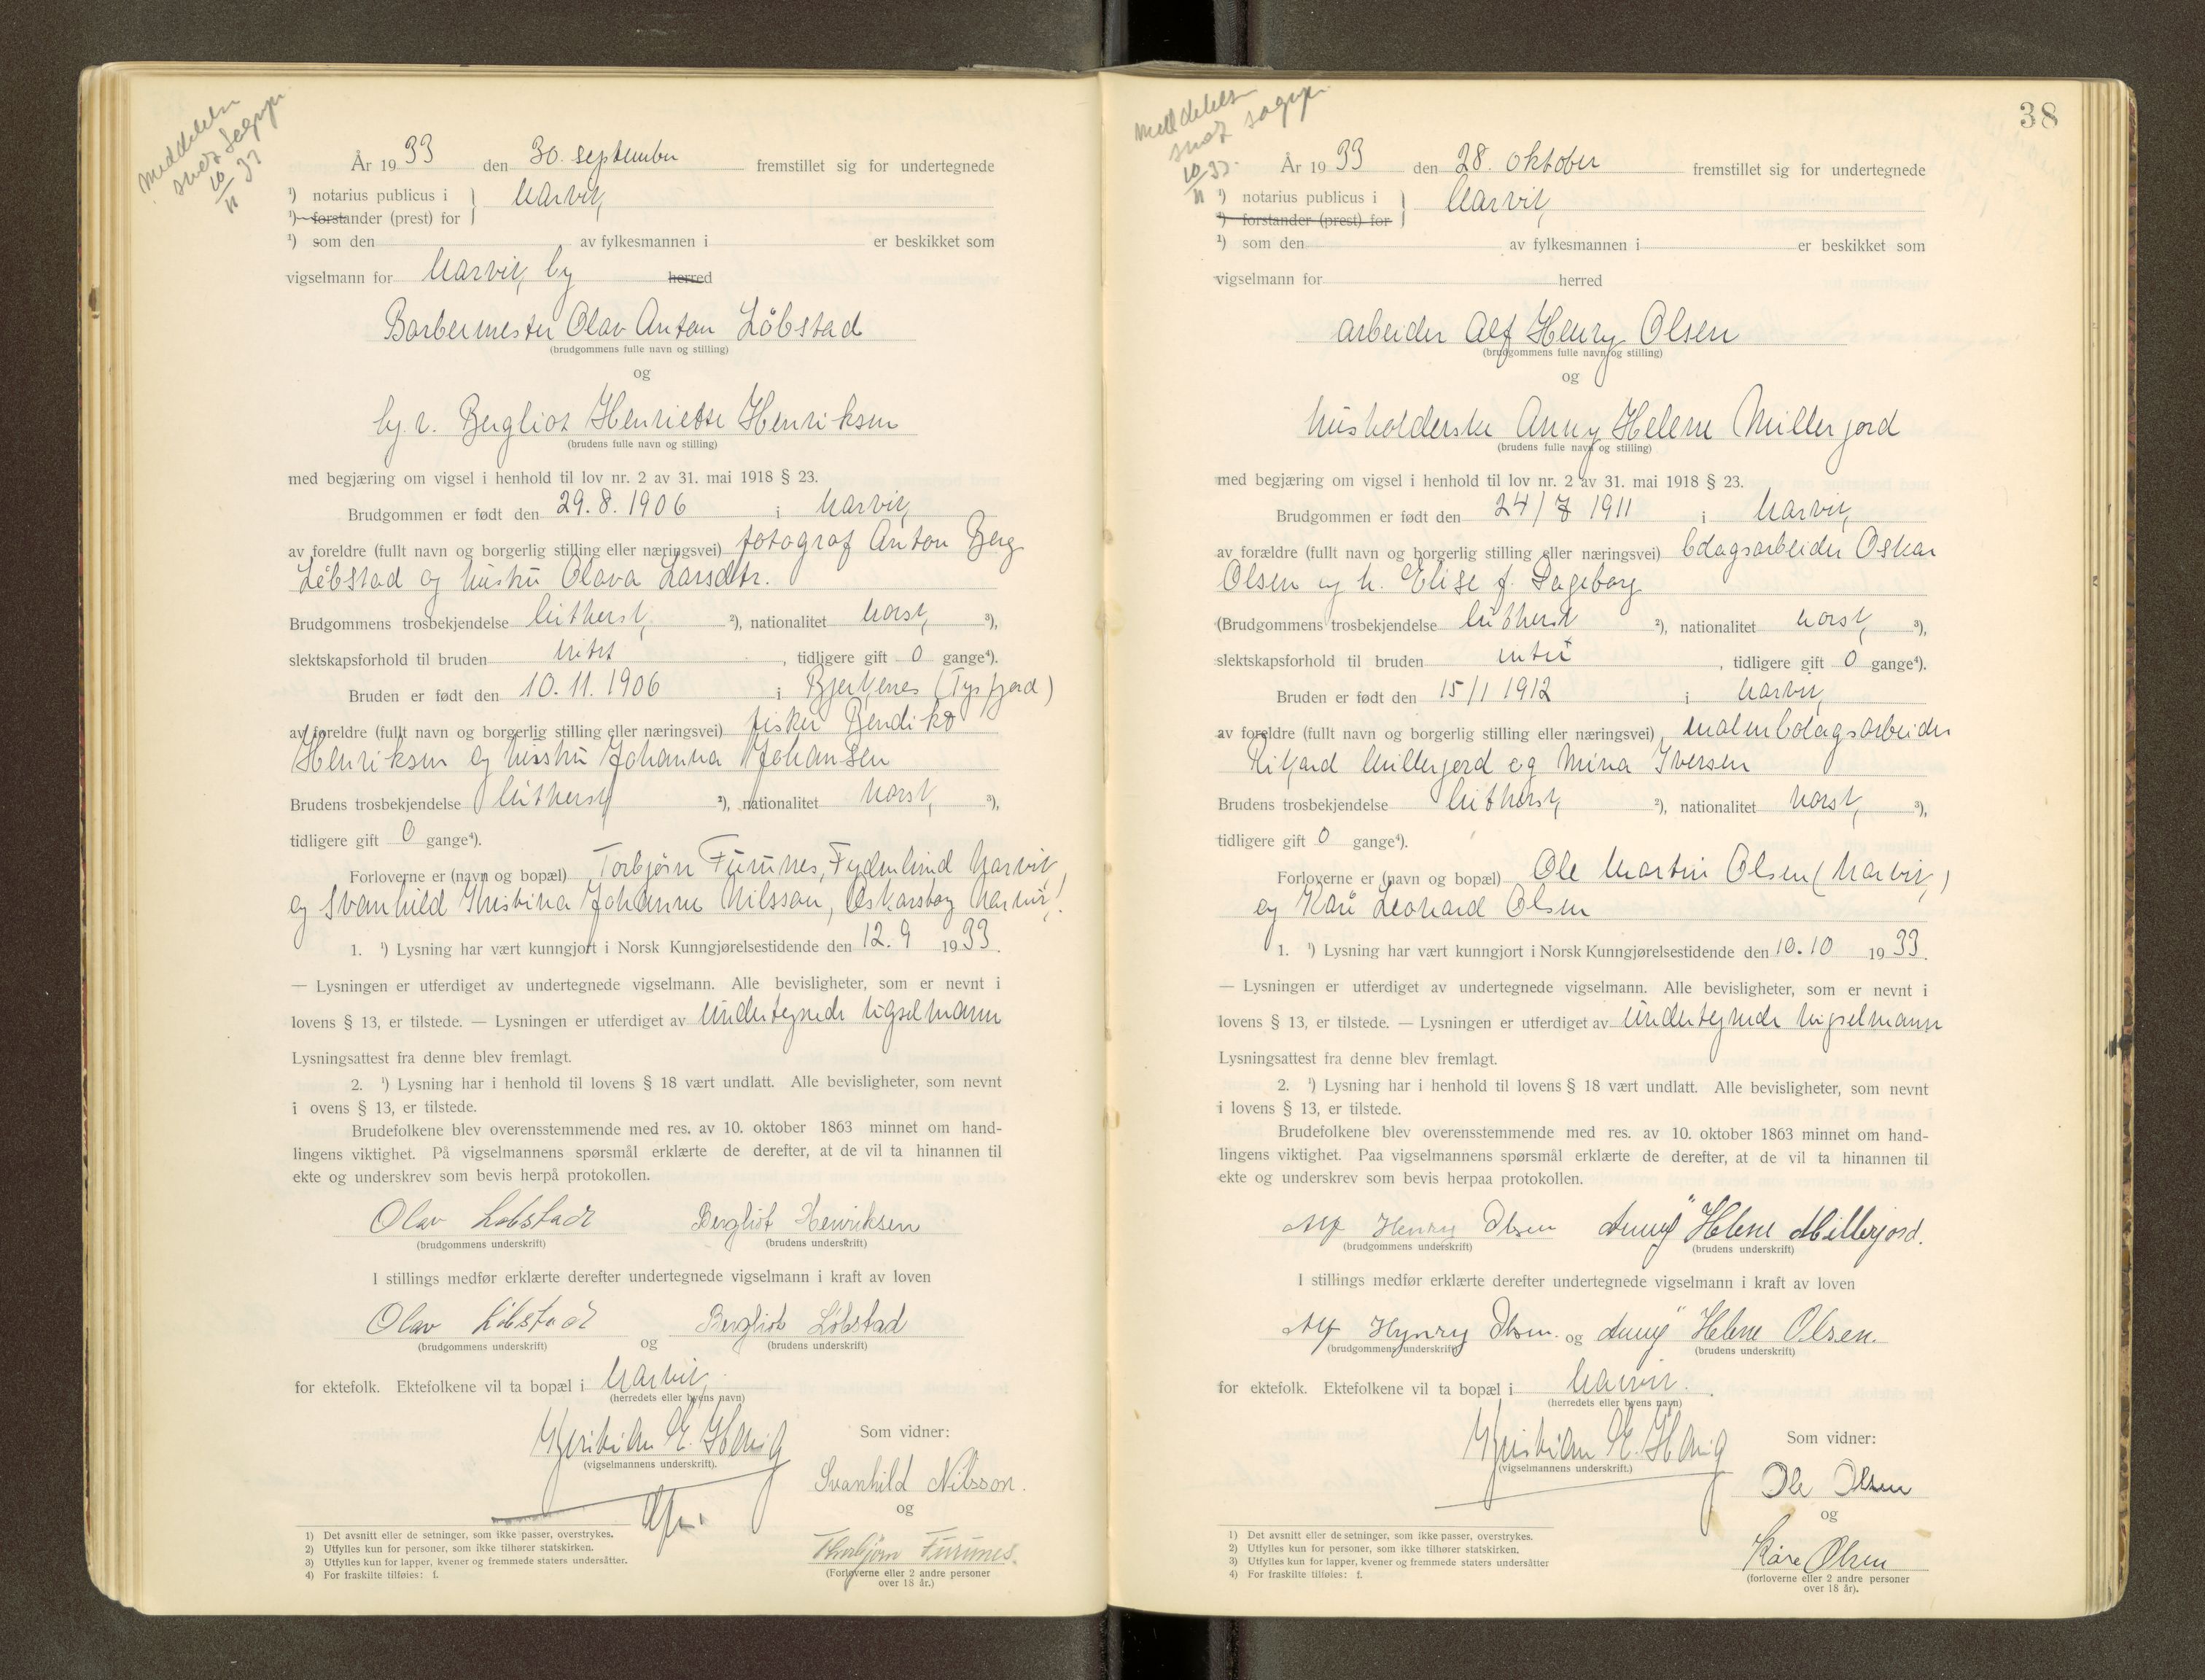 Meddelelse
snot sogepr
10/11 33
År 1933 den 30. september fremstillet sig for undertegnede
¹) notarius publicus i } Narvik
¹) forstander (prest) for
¹) som den av fylkesmannen i er beskikket som
vigselmann for Narvik by herred
Barbermester Olav Anton Löbstad
(brudgommens fulle navn og stilling)
og
hj. v. Bergliot Henriette Henriksen
(brudens fulle navn og stilling)
med begjæring om vigsel i henhold til lov nr. 2 av 31. mai 1918 § 23.
Brudgommen er født den 29.8.1906 i Narvik
av foreldre (fullt navn og borgerlig stilling eller næringsvei) fotograf Anton Berg
Löbstad og hustru Olava Larsdtr.
Brudgommens trosbekjendelse luthersk ²), nationalitet norsk ³),
slektskapsforhold til bruden intet , tidligere gift 0 gange⁴).
Bruden er født den 10.11.1906 i Bjerkenes (Tysfjord)
av foreldre (fullt navn og borgerlig stilling eller næringsvei) fisker Bendiks
Henriksen og hustru Johanna Johansen
Brudens trosbekjendelse luthersk ²), nationalitet norsk ³),
tidligere gift 0 gange⁴).
Forloverne er (navn og bopæl) Torbjørn Furunes, Fydenlund Narvik
og Svanhild Kristina Johanne Nilsson, Oskarsborg Narvik!
1. ¹) Lysning har vært kunngjort i Norsk Kunngjørelsestidende den 12.9 1933.
— Lysningen er utferdiget av undertegnede vigselmann. Alle bevisligheter, som er nevnt i
lovens § 13, er tilstede. — Lysningen er utferdiget av undertegnede vigselmann
Lysningsattest fra denne blev fremlagt.
2. ¹) Lysning har i henhold til lovens § 18 vært undlatt. Alle bevisligheter, som nevnt
i ovens § 13, er tilstede.
Brudefolkene blev overensstemmende med res. av 10. oktober 1863 minnet om hand-
lingens viktighet. På vigselmannens spørsmål erklærte de derefter, at de vil ta hinannen til
ekte og underskrev som bevis herpå protokollen.
Olav Løbstad Bergliot Henriksen
(brudgommens underskrift) (brudens underskrift)
I stillings medfør erklærte derefter undertegnede vigselmann i kraft av loven
Olav Løbstad og Bergliot Løbstad
(brudgommens underskrift) (brudens underskrift)
for ektefolk. Ektefolkene vil ta bopæl i Narvik
(herredets eller byens navn)
Kristian E. Houg
(vigselmannens underskrift).
Som vidner:
Svanhild Nilsson.
og
Thorbjørn Furunes.
(Forloverne eller 2 andre personer
over 18 år.)
1) Det avsnitt eller de setninger, som ikke passer, overstrykes.
2) Utfylles kun for personer, som ikke tilhører statskirken.
3) Utfylles kun for lapper, kvener og fremmede staters undersåtter.
4) For fraskilte tilføies: f.
38
Meddelelse
snot sogepr
10/11 33.
År 1933 den 28. oktober fremstillet sig for undertegnede
¹) notarius publicus i } Narvik
¹) forstander (prest) for
¹) som den av fylkesmannen i er beskikket som
vigselmann for herred
arbeider Alf Henry Olsen
(brudgommens fulle navn og stilling)
og
husholderske Anny Helene Millerjord
(brudens fulle navn og stilling)
med begjæring om vigsel i henhold til lov nr. 2 av 31. mai 1918 § 23.
Brudgommen er født den 24/7 1911 i Narvik
av forældre (fullt navn og borgerlig stilling eller næringsvei) bolagsarbeider Oskar
Olsen og h. Elise f. Dageborg
(Brudgommens trosbekjendelse luthersk ²), nationalitet norsk ³),
slektskapsforhold til bruden intet , tidligere gift 0 gange⁴).
Bruden er født den 15/1 1912 i Narvik
av foreldre (fullt navn og borgerlig stilling eller næringsvei) malmbolagsarbeider
Rikard Millerjord og Mina Iversen
Brudens trosbekjendelse luthersk ²), nationalitet norsk ³),
tidligere gift 0 gange⁴).
Forloverne er (navn og bopæl) Ole Martin Olsen (Narvik)
og Kåre Leonard Olsen
1. ¹) Lysning har vært kunngjort i Norsk Kunngjørelsestidende den 10.10 1933.
— Lysningen er utferdiget av undertegnede vigselmann. Alle bevisligheter, som er nevnt i
lovens § 13, er tilstede. — Lysningen er utferdiget av undertegnede vigselmann
Lysningsattest fra denne blev fremlagt.
2. ¹) Lysning har i henhold til lovens § 18 vært undlatt. Alle bevisligheter, som nevnt
i lovens § 13, er tilstede.
Brudefolkene blev overensstemmende med res. av 10. oktober 1863 minnet om hand-
lingens viktighet. Paa vigselmannens spørsmål erklærte de derefter, at de vil ta hinannen til
ekte og underskrev som bevis herpaa protokollen.
Alf Henry Olsen Anny Helene Millerjord.
(brudgommens underskrift) (brudens underskrift)
I stillings medfør erklærte derefter undertegnede vigselmann i kraft av loven
Alf Hynry Olsen. og Anny Helene Olsen.
(brudgommens underskrift) (brudens underskrift)
for ektefolk. Ektefolkene vil ta bopæl i Narvik.
(herredets eller byens navn)
Kristian E. Houg
(vigselmannens underskrift.)
Som vidner:
Ole Olsen
og
Kåre Olsen
(forloverne eller 2 andre personer
over 18 år).
1) Det avsnitt eller de setninger, som ikke passer, overstrykes.
2) Utfylles kun for personer, som ikke tilhører statskirken.
3) Utfylles kun for lapper, kvener og fremmede staters undersåtter
4) For fraskilte tilføies: f.